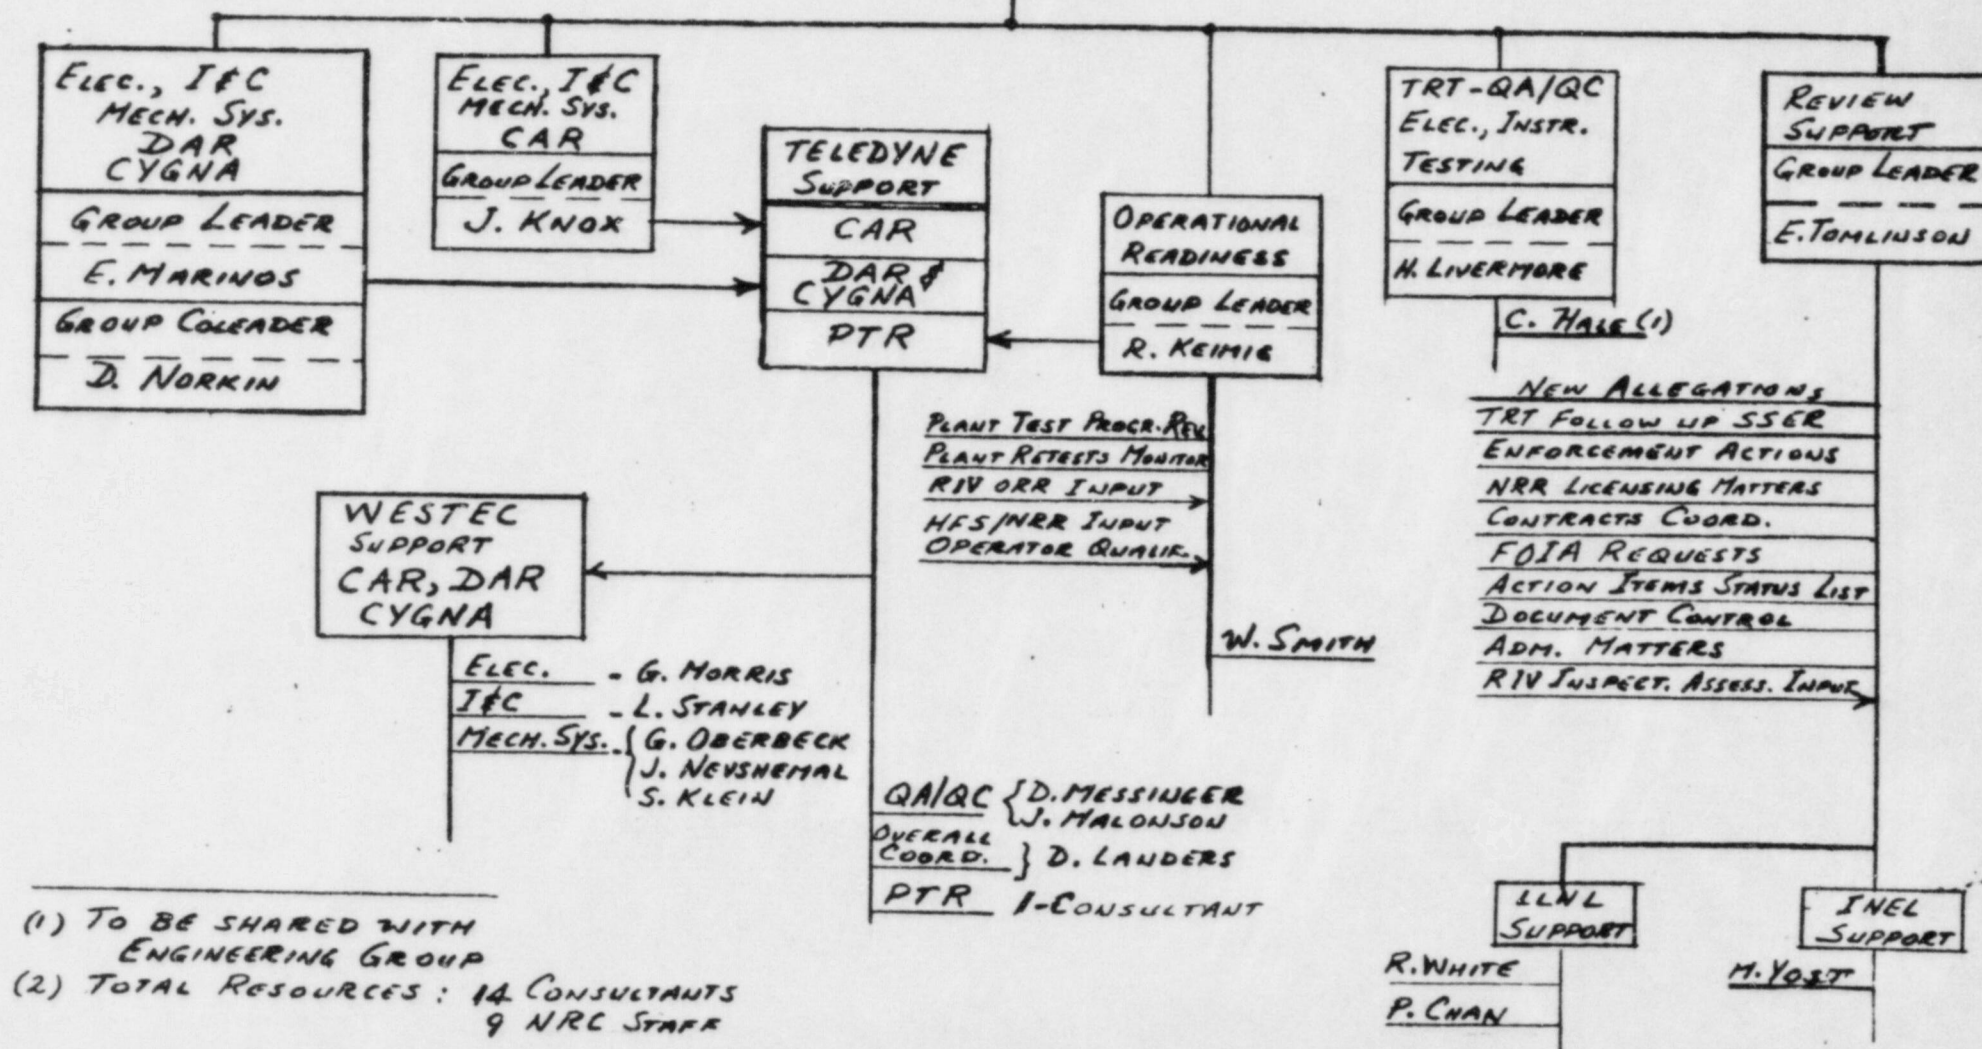 ELEC., I&C
MECH. SYS.
DAR
CYGNA
GROUP LEADER
E. MARINOS
GROUP COLEADER
D. NORKIN
ELEC., I&C
MECH. SYS.
CAR
GROUP LEADER
J. KNOX
TELEDYNE
SUPPORT
CAR
DAR &
CYGNA
PTR
OPERATIONAL
READINESS
GROUP LEADER
R. KEIMIG
TRT-QA/QC
ELEC., INSTR.
TESTING
GROUP LEADER
H. LIVERMORE
C. HALE (1)
REVIEW
SUPPORT
GROUP LEADER
E. TOMLINSON
PLANT TEST PROGR. REV.
PLANT RETESTS MONITOR
RIV ORR INPUT
HFS/NRR INPUT
OPERATOR QUALIF.
W. SMITH
NEW ALLEGATIONS
TRT FOLLOW UP SSER
ENFORCEMENT ACTIONS
NRR LICENSING MATTERS
CONTRACTS COORD.
FOIA REQUESTS
ACTION ITEMS STATUS LIST
DOCUMENT CONTROL
ADM. MATTERS
RIV INSPECT. ASSESS. INPUT
WESTEC
SUPPORT
CAR, DAR
CYGNA
ELEC. - G. MORRIS
I&C - L. STANLEY
MECH. SYS. - { G. OBERBECK
J. NEVSHEMAL
S. KLEIN
QA/QC { D. MESSINGER
J. MALONSON
OVERALL
COORD. } D. LANDERS
PTR 1-CONSULTANT
LLNL
SUPPORT
R. WHITE
P. CHAN
INEL
SUPPORT
M. YOST
(1) TO BE SHARED WITH
ENGINEERING GROUP
(2) TOTAL RESOURCES: 14 CONSULTANTS
9 NRC STAFF